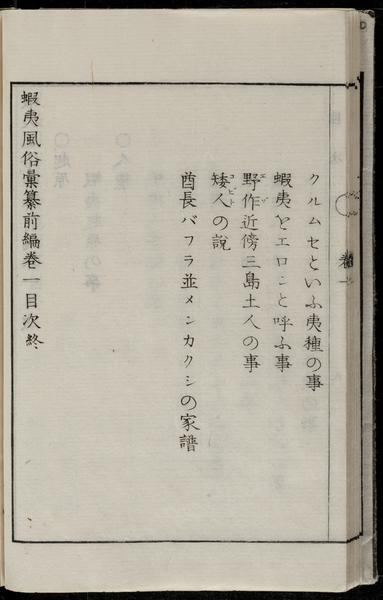 クルムセといふ夷種の事
蝦夷をエロンと呼ふ事
野作近傍三島土人の事
矮人の説
酋長バフラ並メンカクシの家譜
蝦夷風俗彙纂前編巻一目次終